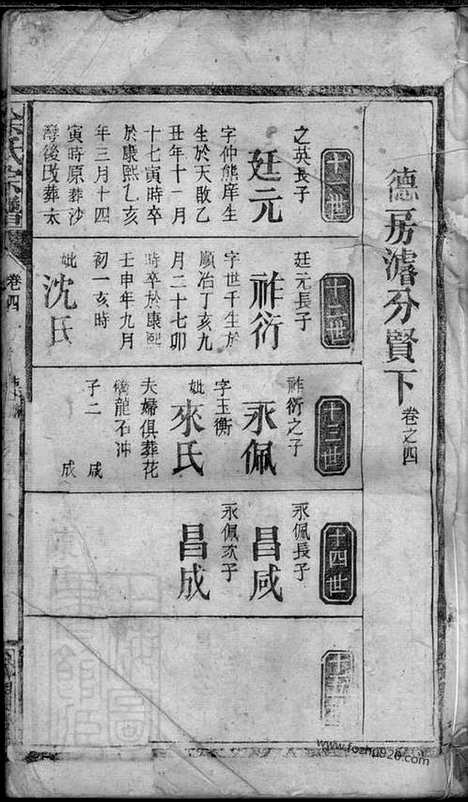 德房濬分賢下 卷之四
十一世
之英長子
廷元
字仲熊庠生
生於天啟乙
丑年十一月
十七寅時卒
於康熙乙亥
年三月十四
寅時原葬沙
灣後改葬太
十二世
廷元長子
祚衍
字世千生於
順治丁亥九
月二十七卯
時卒於康熙
壬申年九月
初一亥時
妣沈氏
十三世
祚衍之子
永佩
字玉衡
妣來氏
夫婦俱葬花
龍石冲
子二 咸 成
十四世
永佩長子
昌咸
永佩次子
昌成
氏宗譜
卷四
www.fozhu920.com